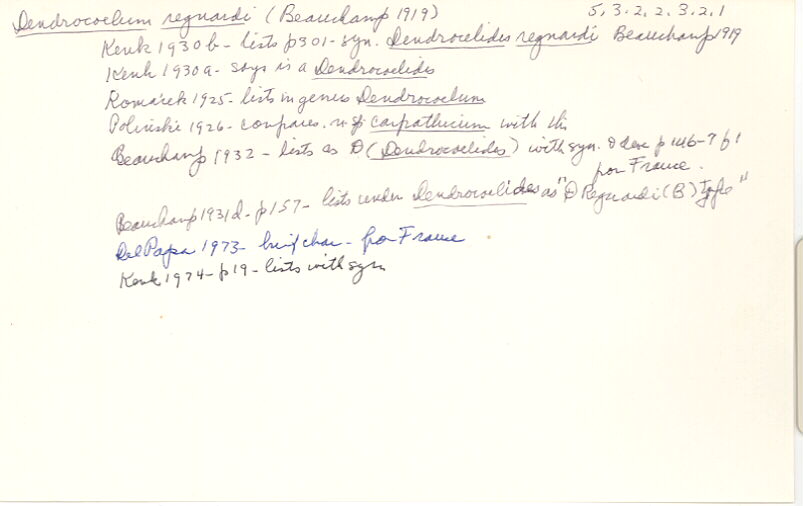 Dendrocoelum regnardi (Beauchamp 1919) 5, 3.2.2.3.2.1
Kenk 1930b - lists p301 - syn. Dendrocelides regnardi Beauchamp 1919
Kenk 1930a - says is a Dendrocoelides
Komárek 1925 - lists in genus Dendrocoelum
Polinski 1926 - compares. n sp carpathicum with this
Beauchamp 1932 - lists as D (Dendrocoelides) with syn. & desc p 146-7 f
for France.
Beauchamp 1931d - p157 - lists under Dendrocoelides as "D Regnardi (B) Type"
Del Papa 1973 - brief char - for France
Kenk 1974 - p19 - lists with syn